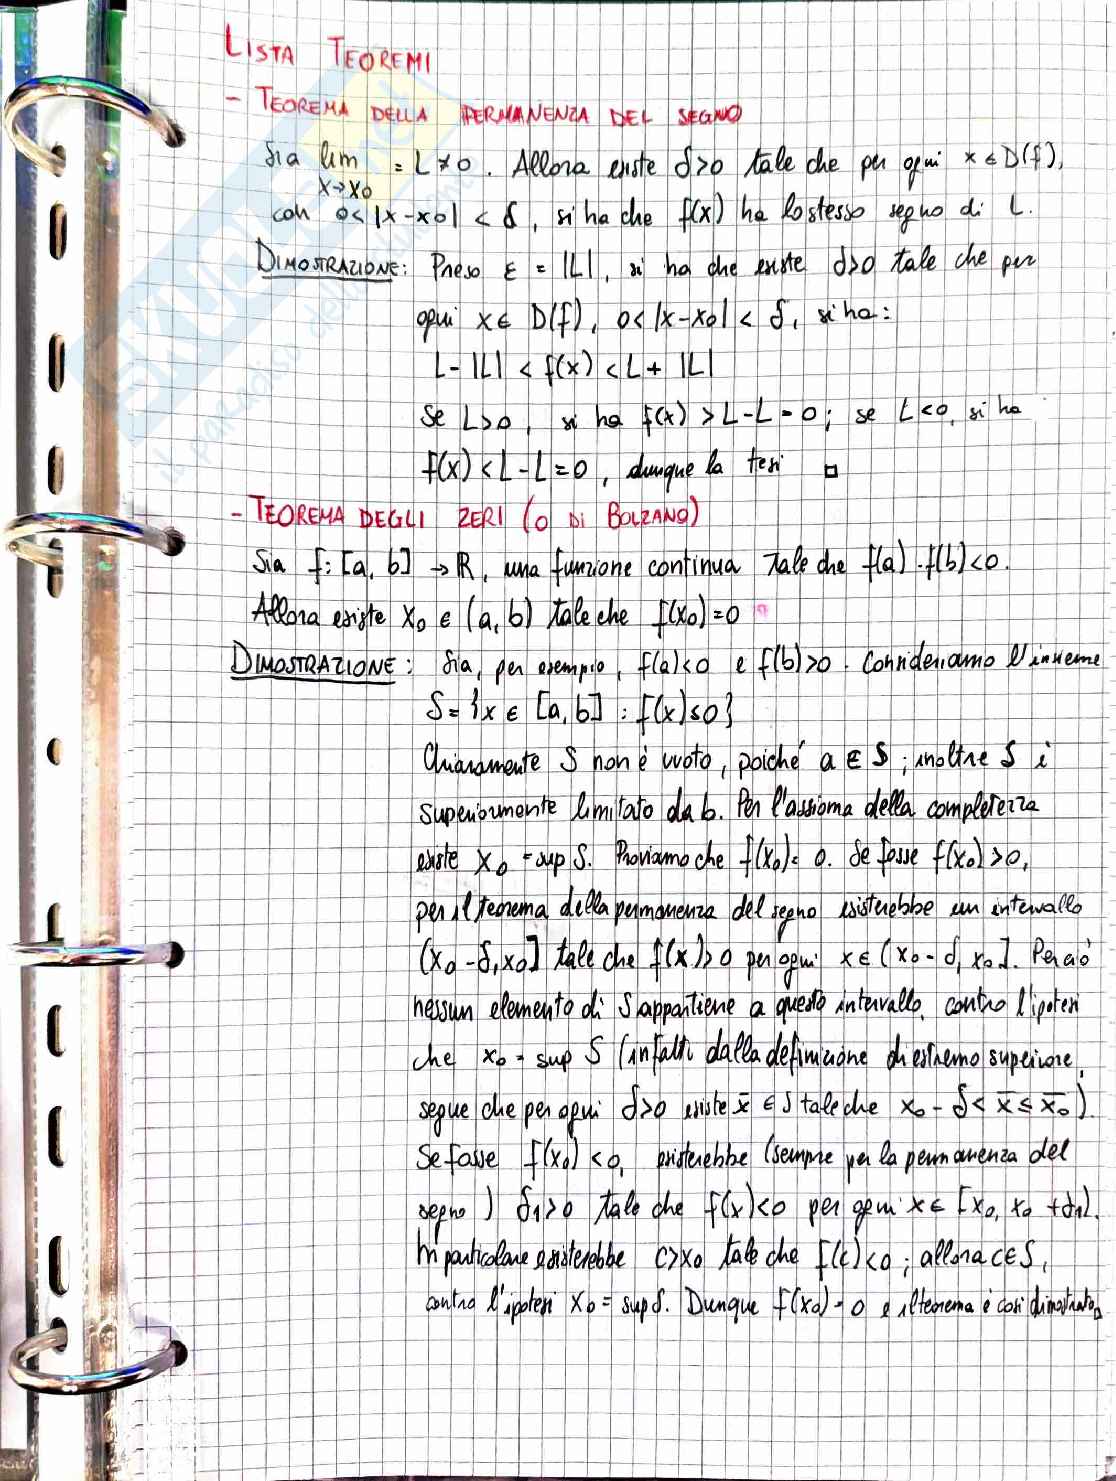 LISTA TEOREMI
- TEOREMA DELLA PERMANENZA DEL SEGNO
Sia lim = L ≠ 0. Allora esiste δ>0 tale che per ogni x ∈ D(f),
x→x0
con 0<|x-x0| < δ, si ha che f(x) ha lo stesso segno di L.
DIMOSTRAZIONE: Preso ε = |L|, si ha che esiste δ>0 tale che per
ogni x ∈ D(f), 0<|x-x0| < δ, si ha:
L-|L| < f(x) < L + |L|
Se L>0, si ha f(x) > L-L = 0; se L<0, si ha
f(x) < L-L=0, dunque la tesi □
- TEOREMA DEGLI ZERI (O DI BOLZANO)
Sia f: [a, b] → R, una funzione continua tale che f(a)·f(b)<0.
Allora esiste x0 ∈ (a, b) tale che f(x0)=0
DIMOSTRAZIONE: Sia, per esempio, f(a)<0 e f(b)>0. Consideriamo l'insieme
S= {x ∈ [a, b] : f(x)≤0}
Chiaramente S non è vuoto, poiché a ∈ S; inoltre S è
superiormente limitato da b. Per l'assioma della completezza
esiste x0 = sup S. Proviamo che f(x0)= 0. Se fosse f(x0)>0,
per il teorema della permanenza del segno esisterebbe un intervallo
(x0-δ, x0] tale che f(x)>0 per ogni x ∈ (x0-δ, x0]. Perciò
nessun elemento di S appartiene a questo intervallo, contro l'ipotesi
che x0 = sup S (infatti dalla definizione di estremo superiore,
segue che per ogni δ>0 esiste x̄ ∈ S tale che x0-δ< x̄ ≤ x̄0).
Se fosse f(x0)<0, esisterebbe (sempre per la permanenza del
segno) δ1>0 tale che f(x)<0 per ogni x ∈ [x0, x0+δ1).
In particolare esisterebbe c>x0 tale che f(c)<0; allora c∈S,
contro l'ipotesi x0 = sup S. Dunque f(x0)=0 e il teorema è così dimostrato □